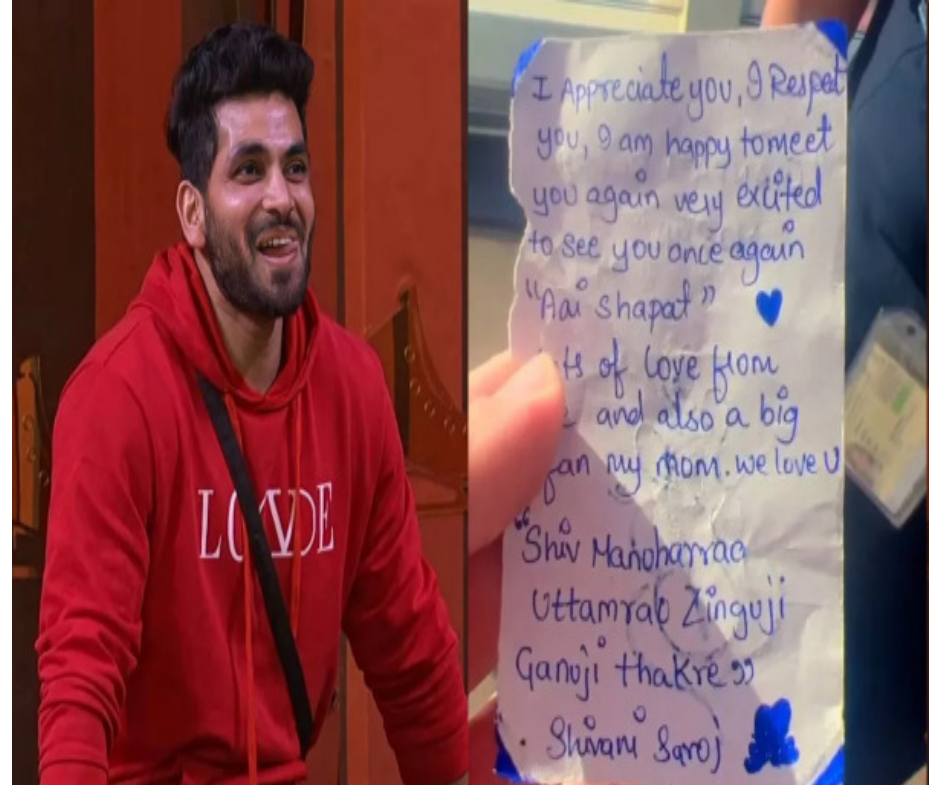 LOVDE
I Appreciate you, I Respect
you, I am happy to meet
you again very exited
to see you once again
"Aai shapat"
of love from
and also a big
fan my mom. we love U
"Shiv Manoharrao
Uttamrao Zinguji
Ganuji thakre"
. Shivani Saroj